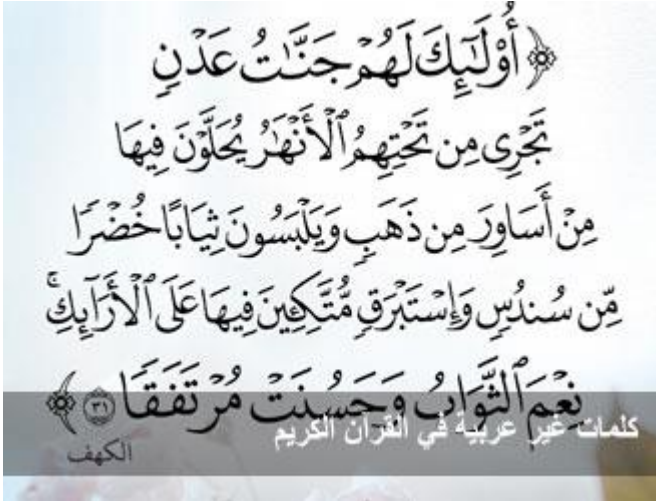 ﴿أُوْلَـٰٓئِكَ لَهُمۡ جَنَّـٰتُ عَدۡنٖ
تَجۡرِي مِن تَحۡتِهِمُ ٱلۡأَنۡهَٰرُ يُحَلَّوۡنَ فِيهَا
مِنۡ أَسَاوِرَ مِن ذَهَبٖ وَيَلۡبَسُونَ ثِيَابًا خُضۡرٗا
مِّن سُندُسٖ وَإِسۡتَبۡرَقٖ مُّتَّكِـِٔينَ فِيهَا عَلَى ٱلۡأَرَآئِكِۚ
نِعۡمَ ٱلثَّوَابُ وَحَسُنَتۡ مُرۡتَفَقٗا ٣١﴾
كلمات غير عربية في القرآن الكريم
الكهف